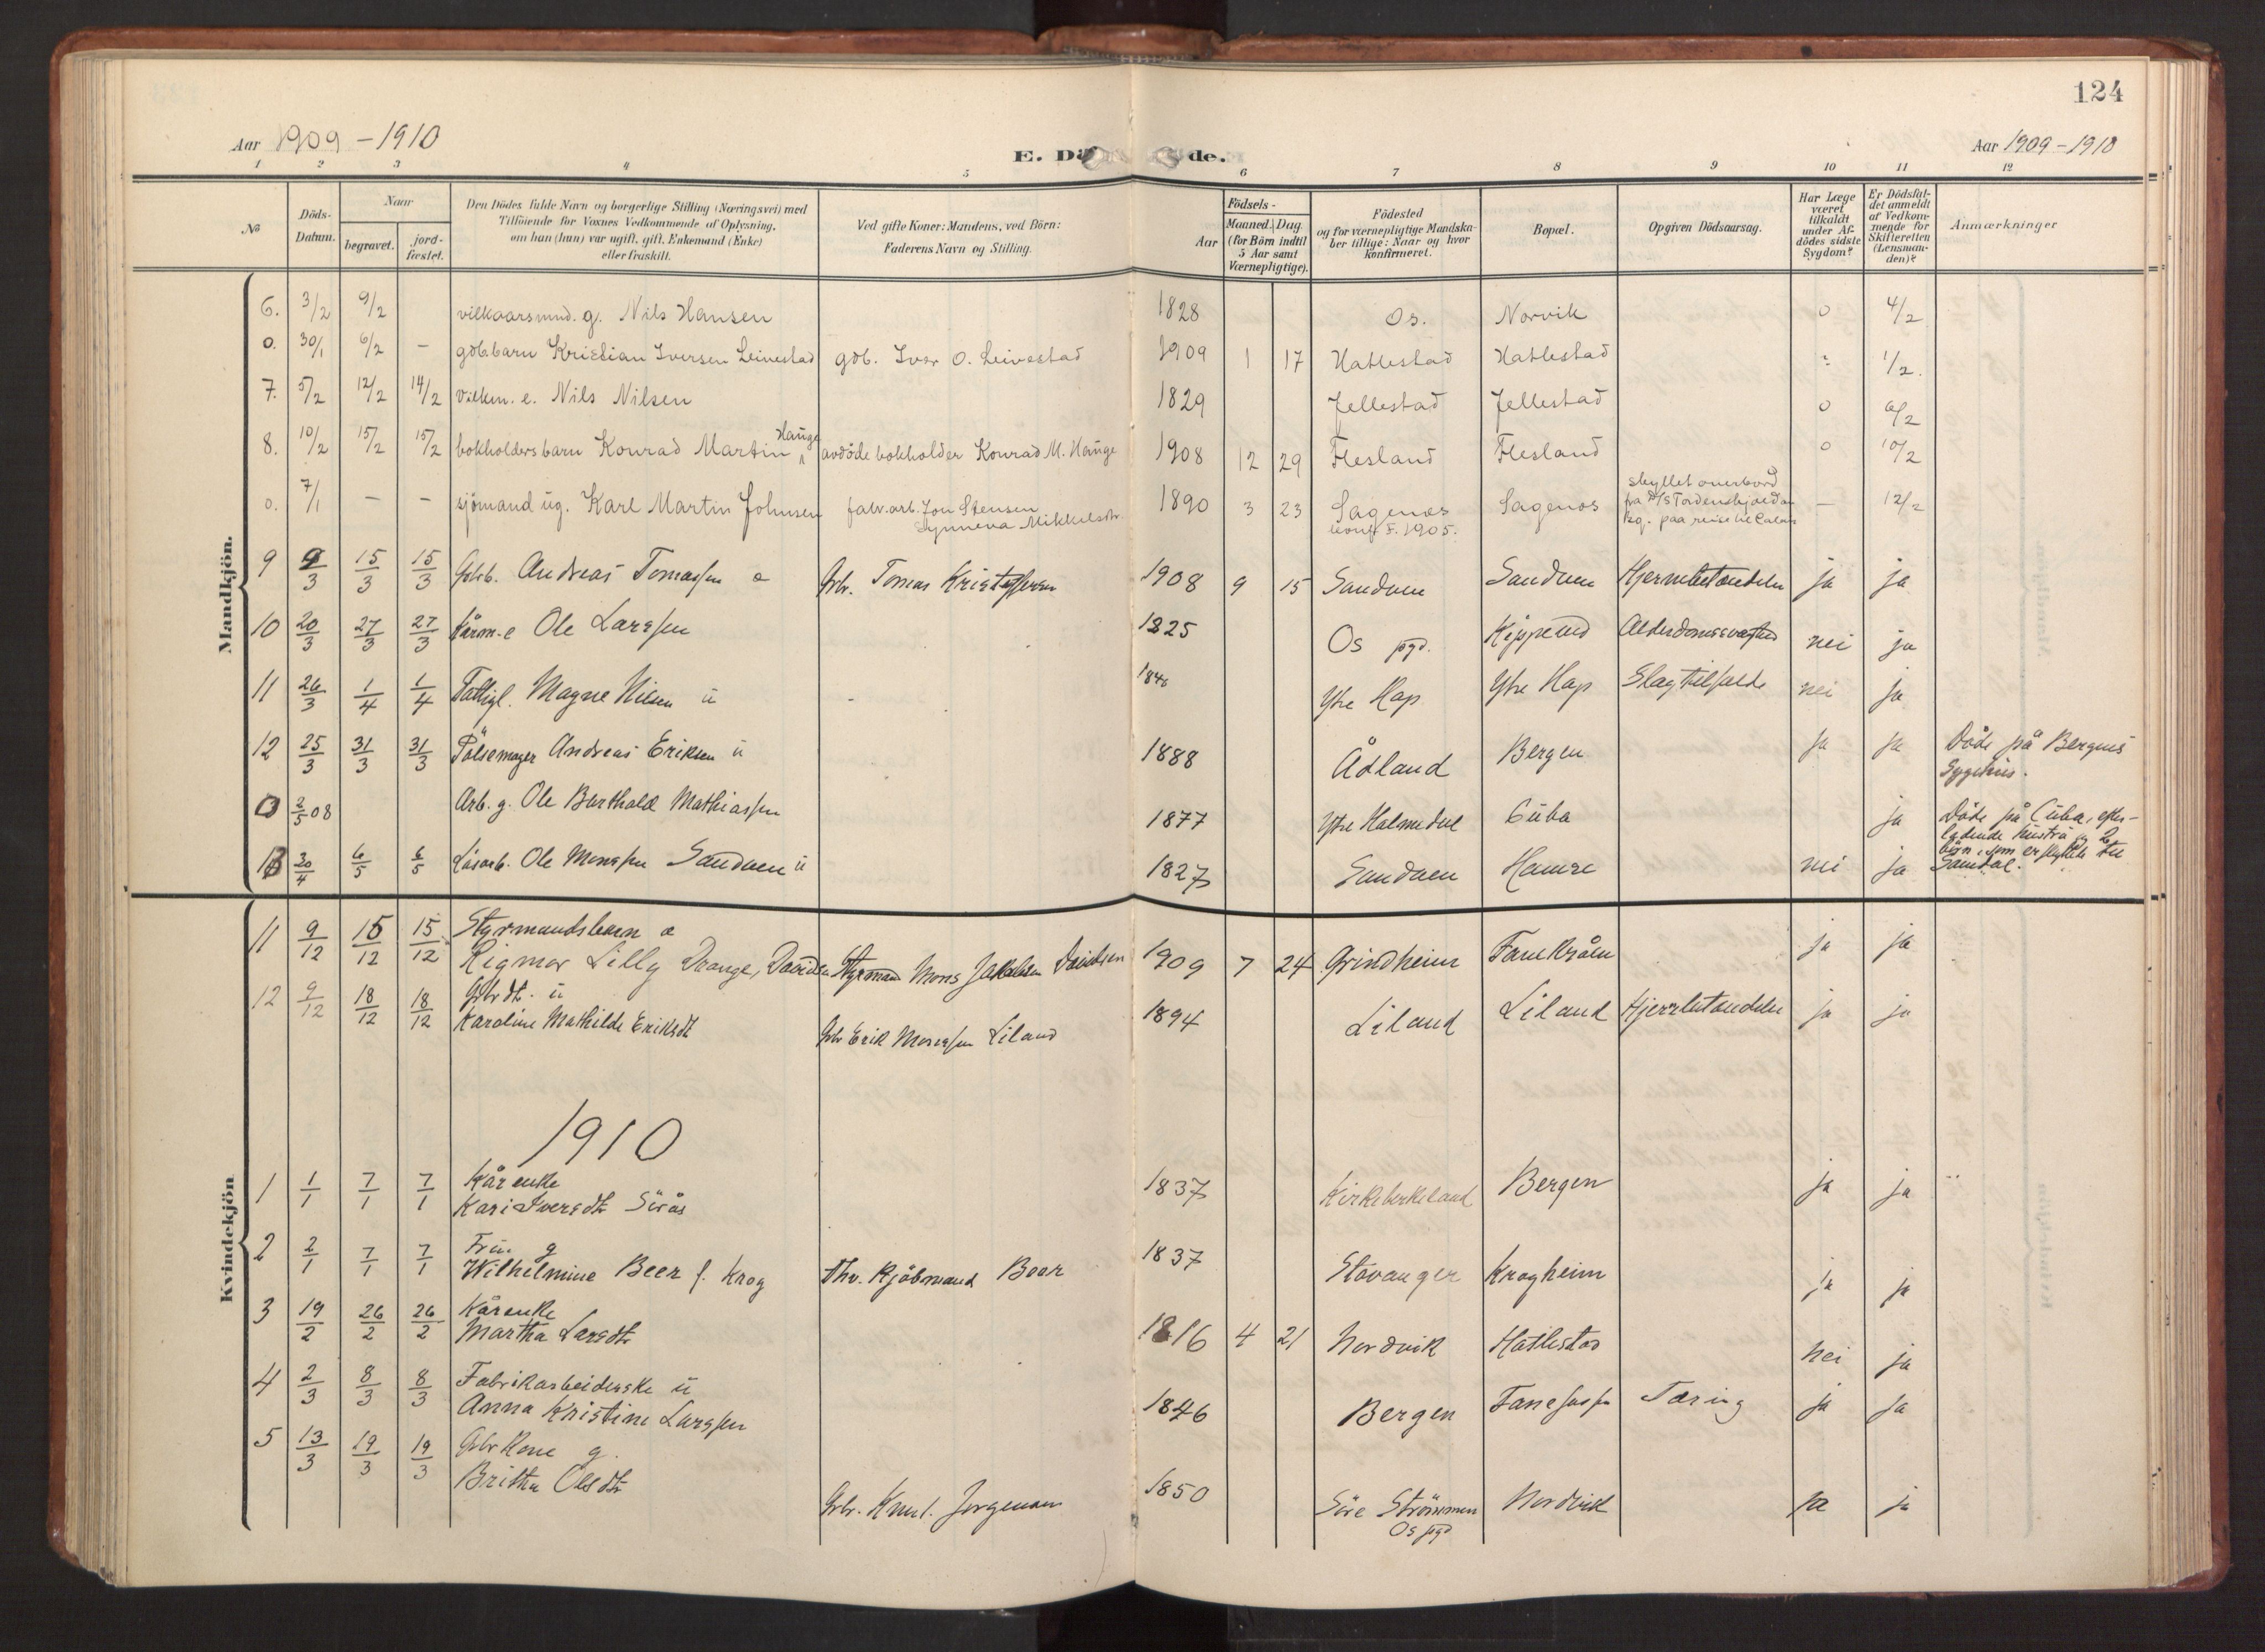 124
Aar 1909 - 1910
E. Dø de.
Aar 1909 - 1910
1 2 3 4 5 6 7 8 9 10 11 12
No
Döds-Datum.
Naar
begravet.
jord-fæstet.
Den Dödes fulde Navn og borgerlige Stilling (Næringsvei) med
Tilföiende for Voxnes Vedkommende af Oplysning,
om han (hun) var ugift, gift, Enkemand (Enke)
eller fraskilt.
Ved gifte Koner: Mandens, ved Börn:
Faderens Navn og Stilling.
Födsels-
Aar
Maaned. Dag.
(for Börn indtil
5 Aar samt
Værnepligtige).
Födested
og for værnepligtige Mandska-
ber tillige: Naar og hvor
konfirmeret.
Bopæl.
Opgiven Dödsaarsag.
Har Læge
været
tilkaldt
under Af-
dödes sidste
Sygdom?
Er Dödsfal-
det anmeldt
af Vedkom-
mende for
Skifteretten
(Lensman-
den)?
Anmærkninger
Mandkjön.
6. 3/2 9/2 vilkaarsmd. g. Nils Hansen 1828 Os. Norvik 0 4/2
0. 30/1 6/2 - gdb.barn Kristian Iversen Leivestad gdb. Ivar O. Leivestad 1909 1 17 Hatlestad Hatlestad ? 1/2.
7. 5/2 12/2 14/2 vilkm. e. Nils Nilsen 1829 Jellestad Jellestad 0 6/2
8. 10/2 15/2 15/2 bokholdersbarn Konrad Martin Hauge avdöde bokholder Konrad M. Hauge 1908 12 29 Flesland Flesland 0 10/2
0. 7/1 - - sjömand ug. Karl Martin Johnsen fabr.arb. Jon Stensen
Synneva Mikkelsdtr. 1890 3 23 Sagenos
konf. F. 1905. Sagenos skyllet overbord
fra D/S Tordenskjold av
Bg. paa reise til - 12/2
9 9/3 15/3 15/3 Gbrb. Andreas Tomassen Gbr. Tomas Kristoffersen 1908 9 15 Sandven Sandven Hjernebetændelse ja ja
10 20/3 27/3 27/3 Kårm. e Ole Larssen 1825 Os pgd. Alderdomssvaghed nei ja
11 26/3 1/4 1/4 Fattigl. Magne Nilsen ü - Ytre Hap Ytre Hap Slagtilfælde nei ja
12 25/3 31/3 31/3 Pölsemager Andreas Eriksen ü 1888 Ådland Bergen ja ja Döde på Bergens
Sygehus.
0 2/5 08 Arb. g. Ole Berthald Mathiassen 1877 Ytre Halmedal Cuba ja Döde på Cuba, efter-
ladende hustru og 2
börn, som er flyttede til
Samdal.
13 30/4 6/5 6/5 Lösarb. Ole Monssen Sandven ü 1827 Sandven Hamre nei ja
Kvindekjön
11 9/12 15/12 15/12 Styrmandsbarn
Rigmor Lilly Drange, Davidsen Styrmand Mons Jakobsen Davidsen 1909 7 24 Grindheim Fanekråen ja ja
12 9/12 18/12 18/12 Gbrdt. ü
Karoline Mathilde Eriksdt Gbr Erik Monssen Liland 1894 Liland Liland ja ja
1910
1 1/1 7/1 7/1 Kårenke
Kari Iversdt Sörås 1837 Kirkebirkeland Bergen ja ja
2 2/1 7/1 7/1 Frü g
Wilhelmine Beer f. Krog fhv. Kjöbmand Beer 1837 Stavanger Krogheim ja ja
3 19/2 26/2 26/2 Kårenke
Martha Larsdtr 1816 4 21 Nordvik Hatlestad nei ja
4 2/3 8/3 8/3 Fabrikarbeiderske ü
Anna Kristine Larssen 1846 Bergen Tæring ja ja
5 13/3 19/3 19/3 Gbrkone g.
Britha Olsdtr Gbr. Knut Jorgensen 1850 Söre Strömmen
Os pgd Nordvik ja ja